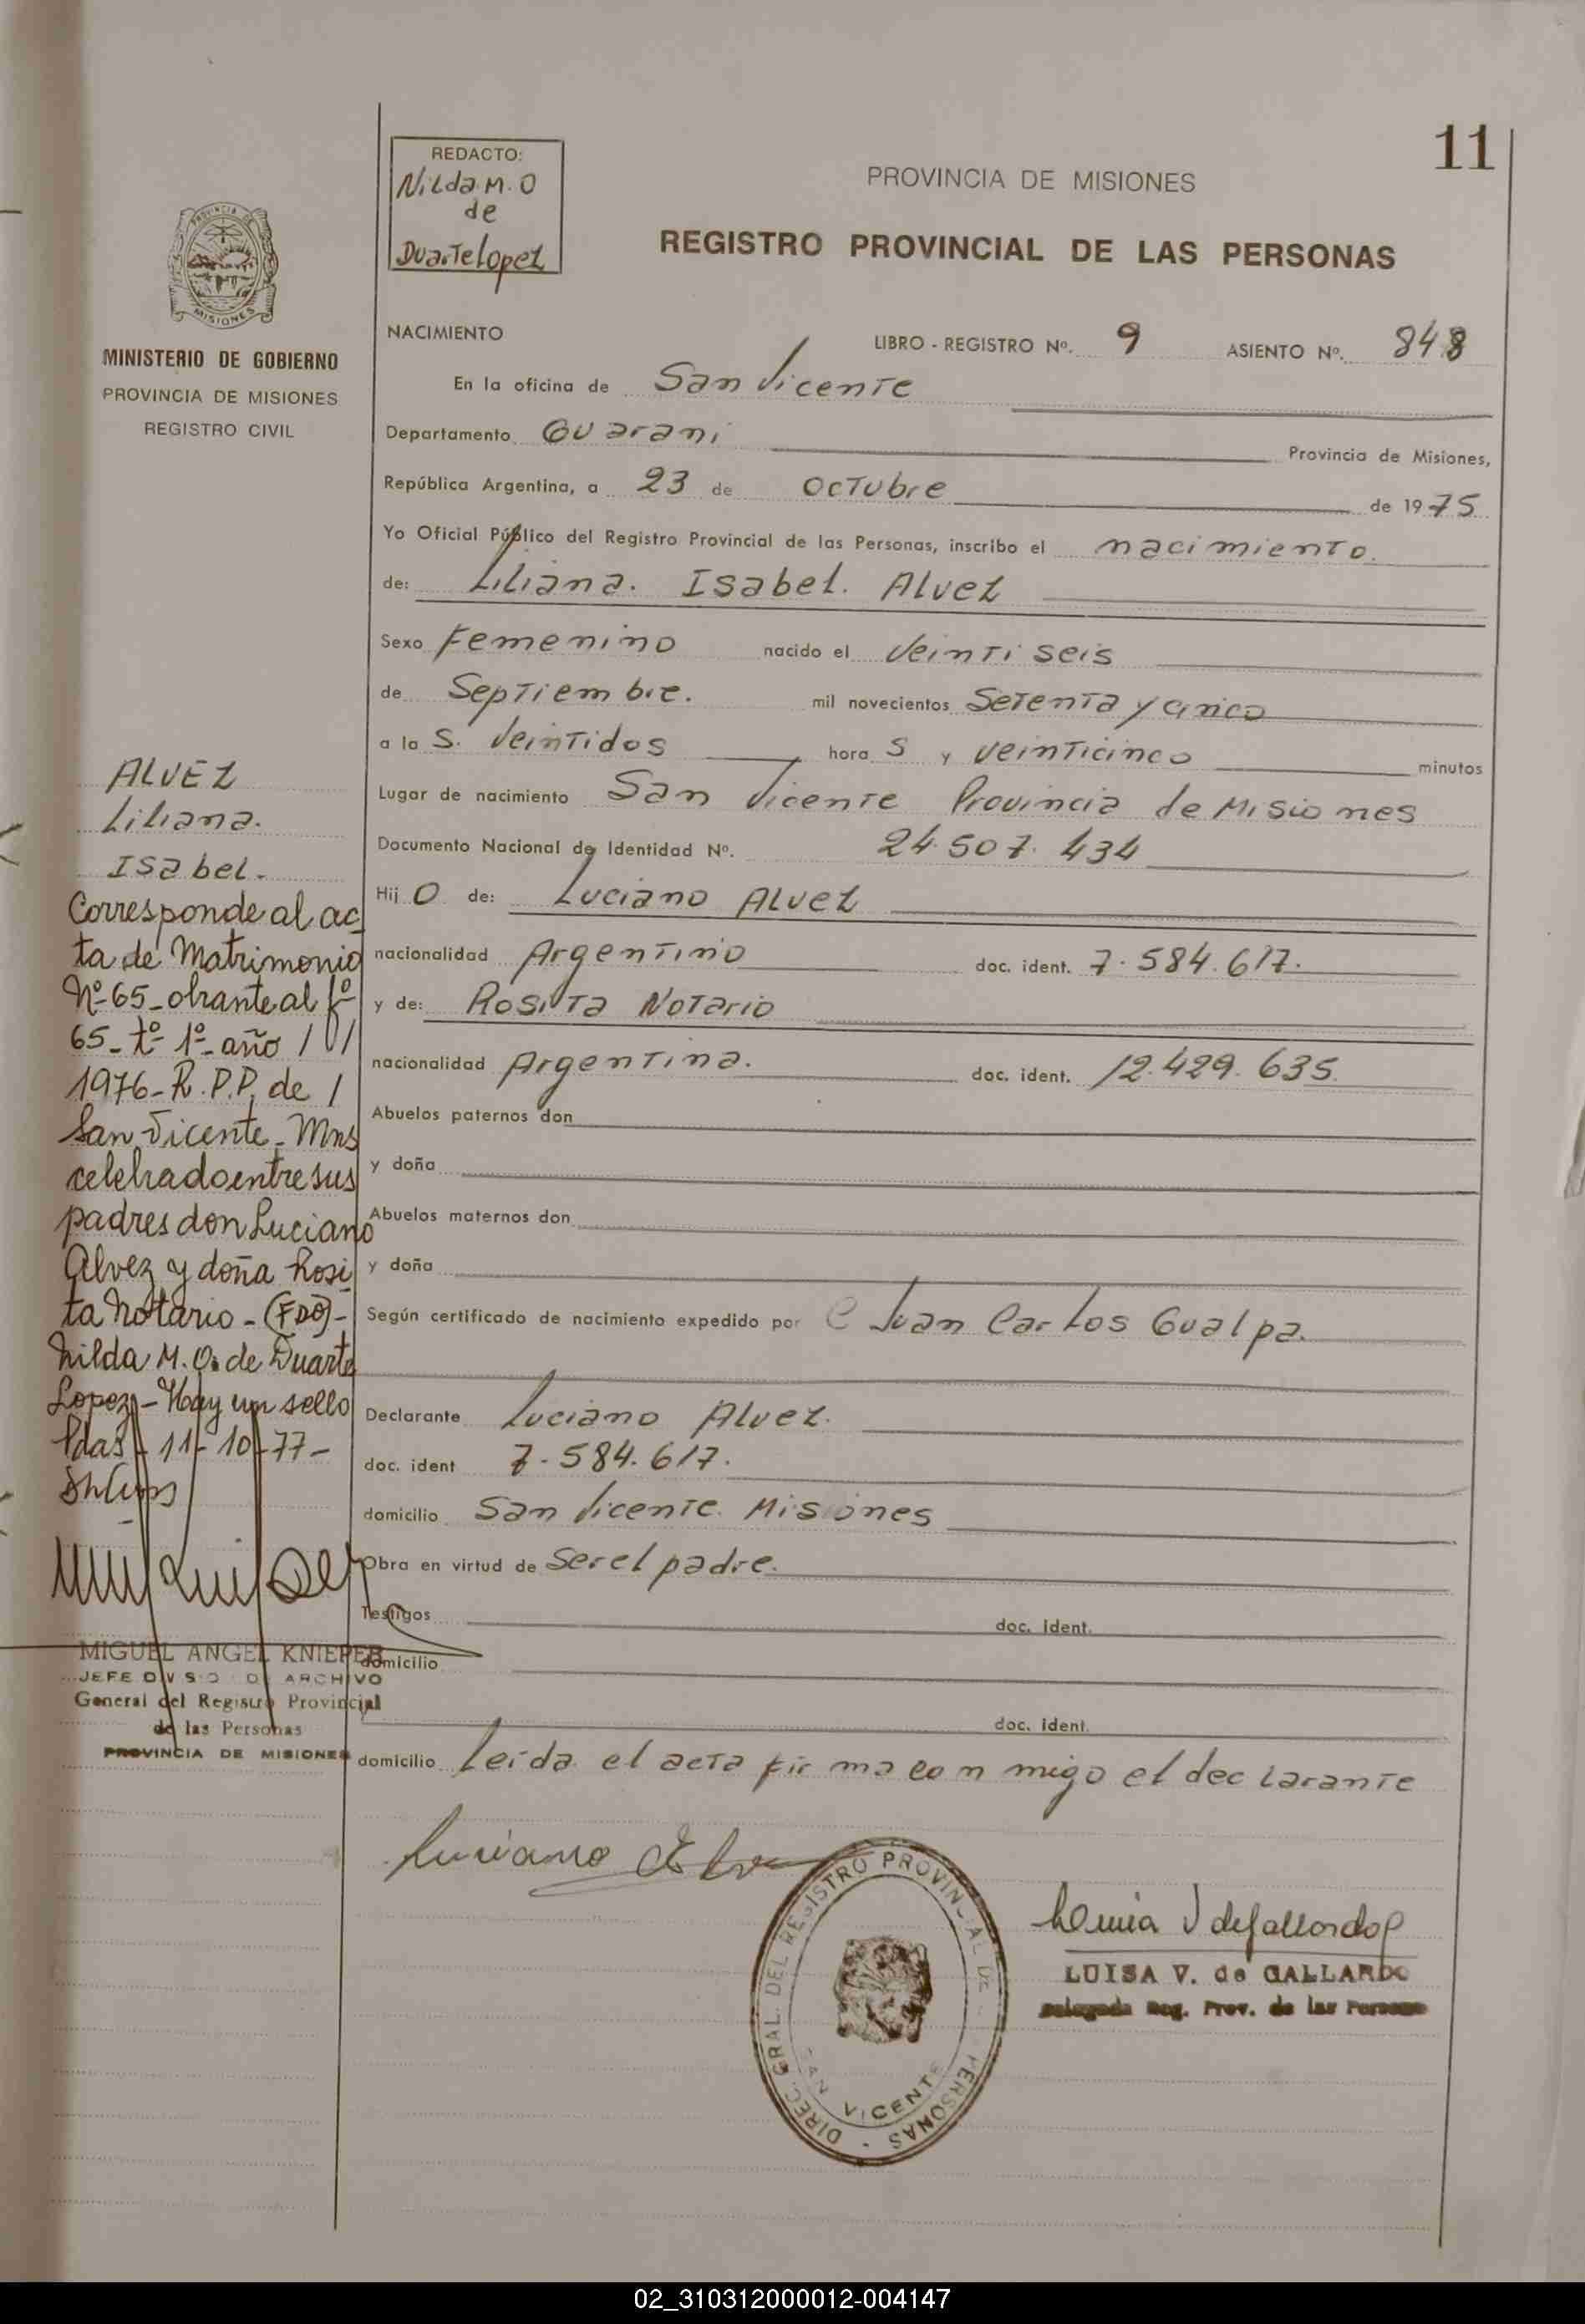 11
REDACTO:
Nilda M. O
de
Duarte Lopez
PROVINCIA DE MISIONES
REGISTRO PROVINCIAL DE LAS PERSONAS
PROVINCIA DE
MISIONES
MINISTERIO DE GOBIERNO
PROVINCIA DE MISIONES
REGISTRO CIVIL
NACIMIENTO LIBRO - REGISTRO Nº. 9 ASIENTO Nº. 848
En la oficina de San Vicente
Departamento Guarani Provincia de Misiones,
República Argentina, a 23 de Octubre de 1975
Yo Oficial Público del Registro Provincial de las Personas, inscribo el nacimiento.
de: Liliana. Isabel. Alvez
Sexo Femenino nacido el Veinti seis
de Septiembre. mil novecientos Setenta y cinco
a la S. Veintidos hora S y veinticinco minutos
Lugar de nacimiento San Vicente Provincia de Misiones
Documento Nacional de Identidad Nº. 24.507.434
Hij O de: Luciano Alvez
nacionalidad Argentino doc. ident. 7.584.617.
y de: Rosita Notario
nacionalidad Argentina. doc. ident. 12.429.635
Abuelos paternos don
y doña
Abuelos maternos don
y doña
Según certificado de nacimiento expedido por Juan Carlos Gualpa.
Declarante Luciano Alvez.
doc. ident 7.584.617.
domicilio San Vicente Misiones
Obra en virtud de Ser el padre.
Testigos doc. ident.
domicilio
doc. ident.
domicilio Leída el acta firma con migo el declarante
ALVEZ
Liliana.
Isabel.
Corresponde al ac
ta de Matrimonio
Nº 65 - obrante al fº
65 - tº 1º - año /
1976 - R.P.P. de /
San Vicente - Mns
celebrado entre sus
padres don Luciano
Alvez y doña Rosi
ta Notario - (FDO) -
Nilda M. O. de Duarte
Lopez - Hay un sello
Pdas - 11-10-77 -
MIGUEL ANGEL KNIEPER
JEFE DIVISIO DE ARCHIVO
General del Registro Provincial
de las Personas
PROVINCIA DE MISIONES
Luciano Alve
DIREC. GRAL. DEL REGISTRO PROVINCIAL DE PERSONAS -
SAN VICENTE
LUISA V. de GALLARDO
Delegada Reg. Prov. de las Personas
02_310312000012-004147